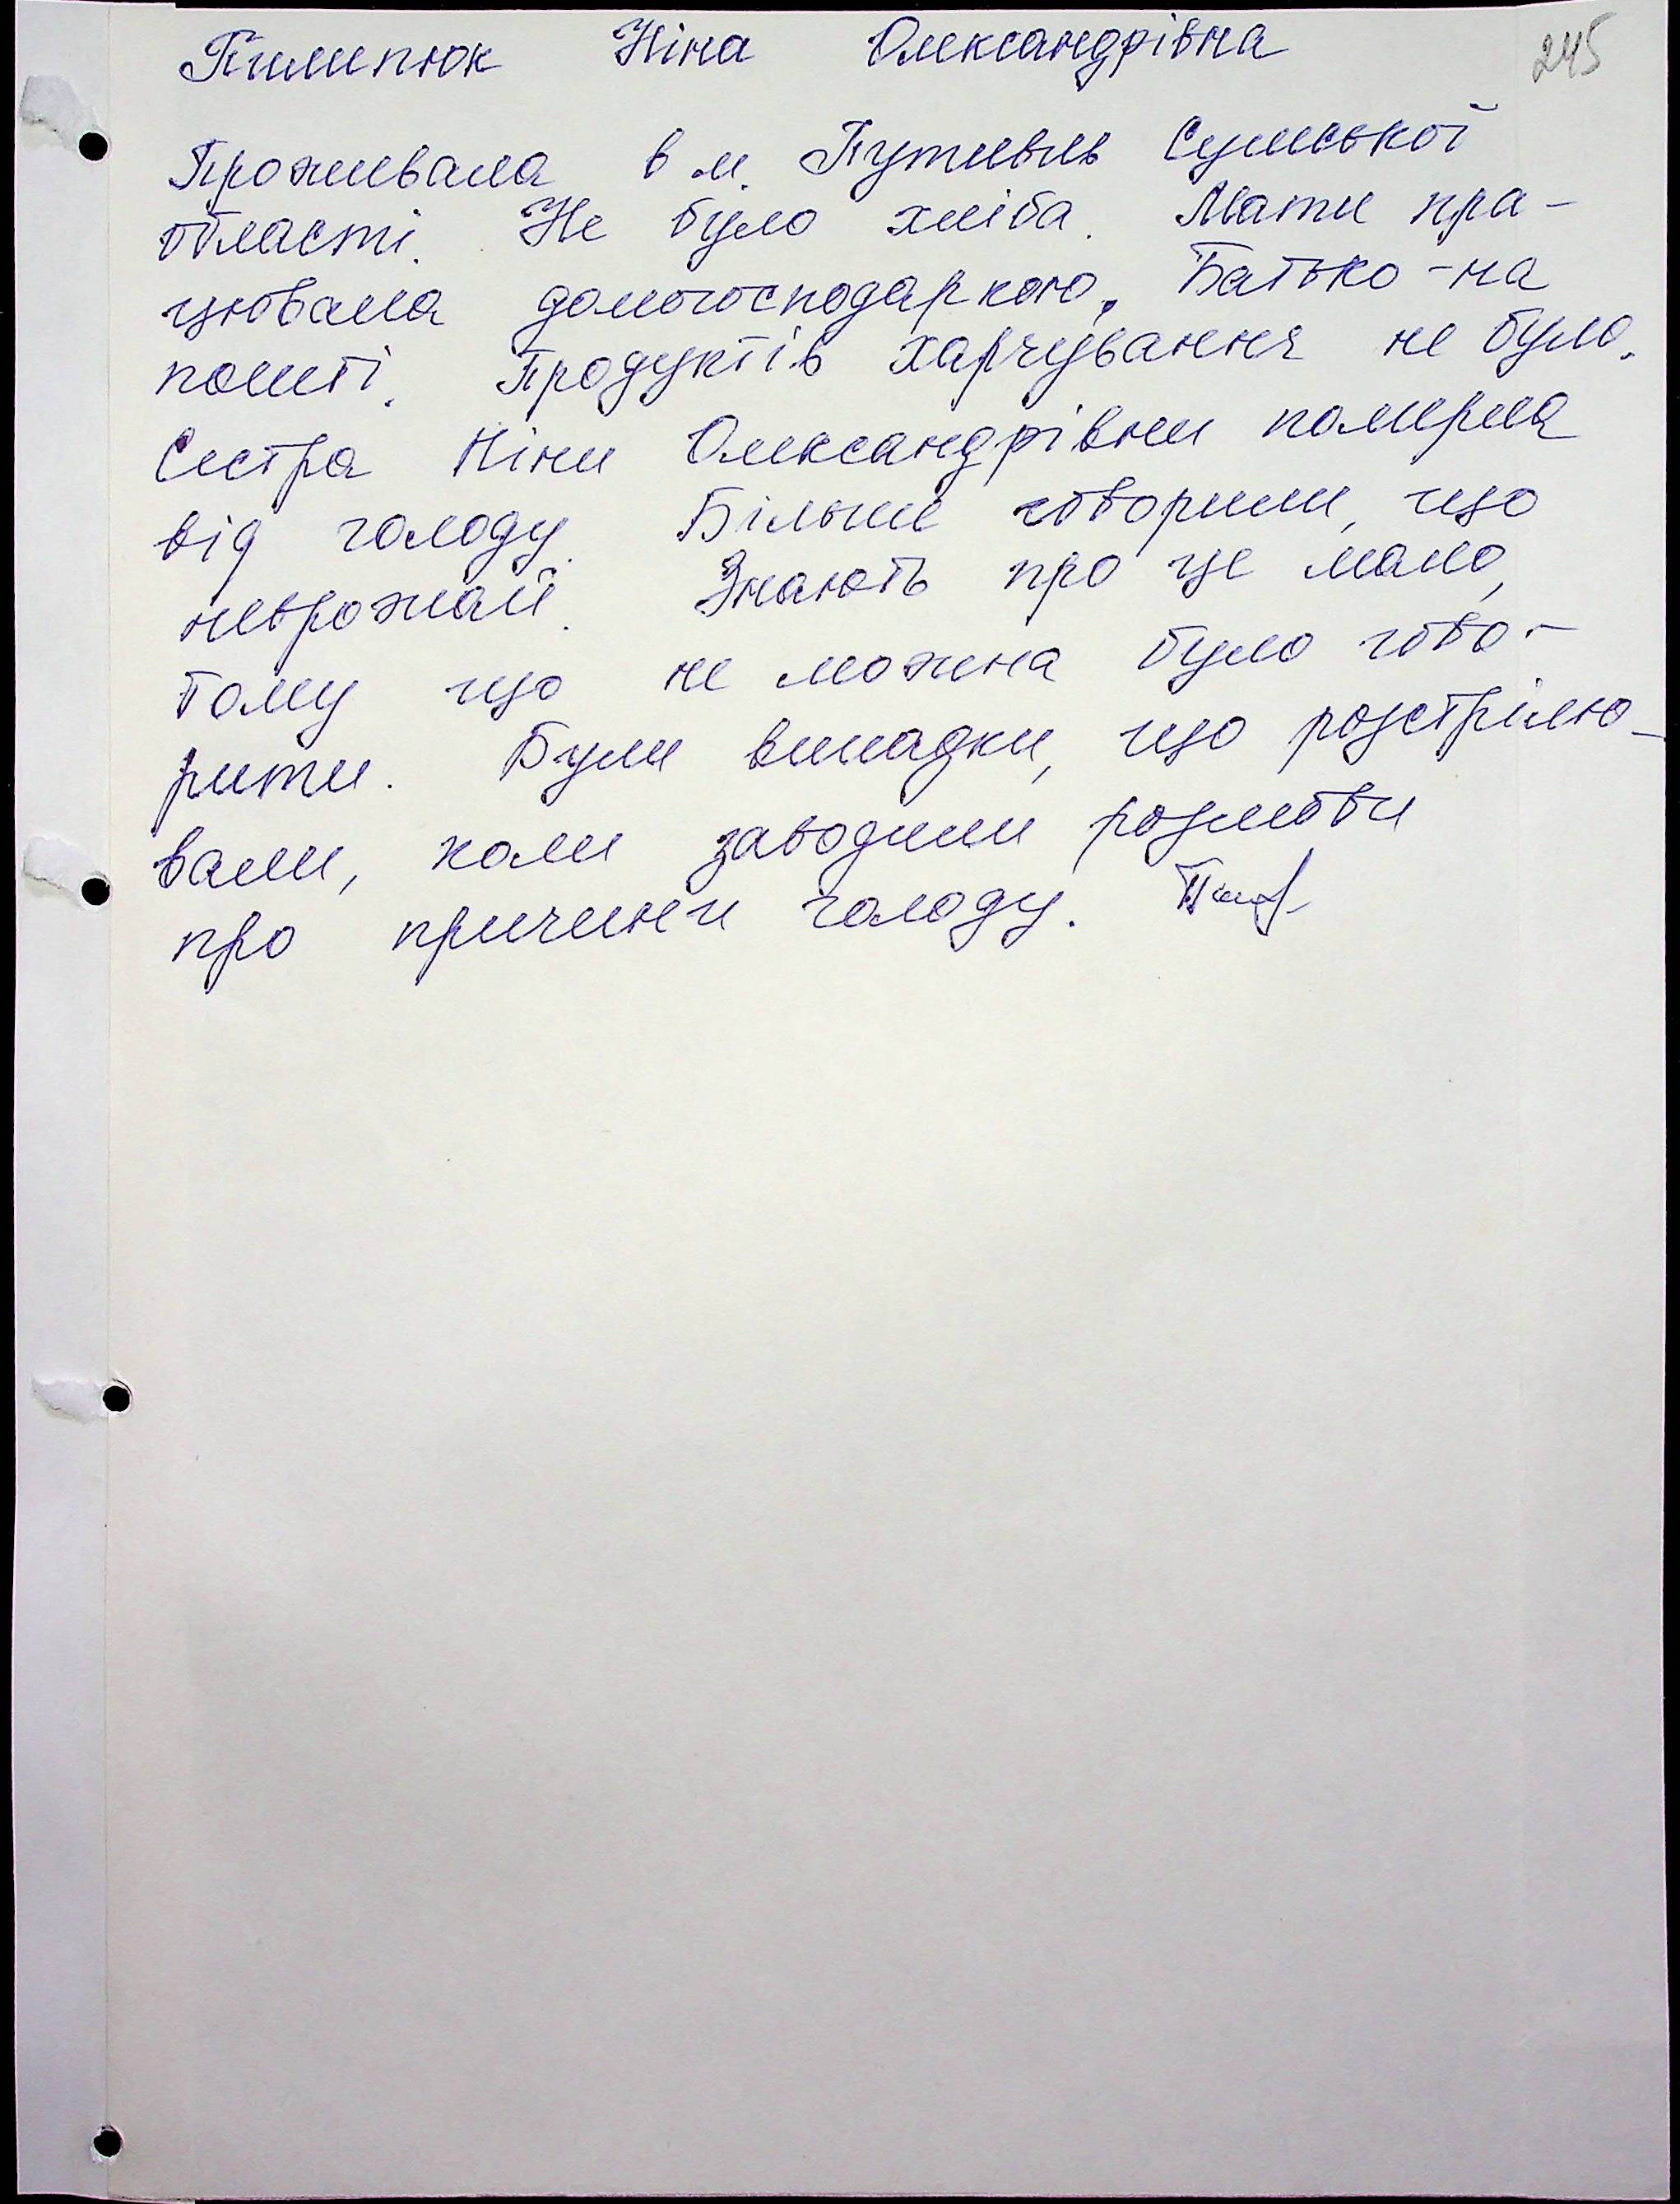 Пилипюк Ніна Олександрівна
245
Проживала в м. Путивль Сумської
області. Не було хліба. Мати пра-
цювала домогосподаркою. Батько - на
пошті. Продуктів харчування не було.
Сестра Ніни Олександрівни померла
від голоду. Більше говорили, що
неврожай. Знають про це мало,
тому що не можна було гово-
рити. Були випадки, що розстрілю-
вали, коли заводили розмови
про причини голоду.